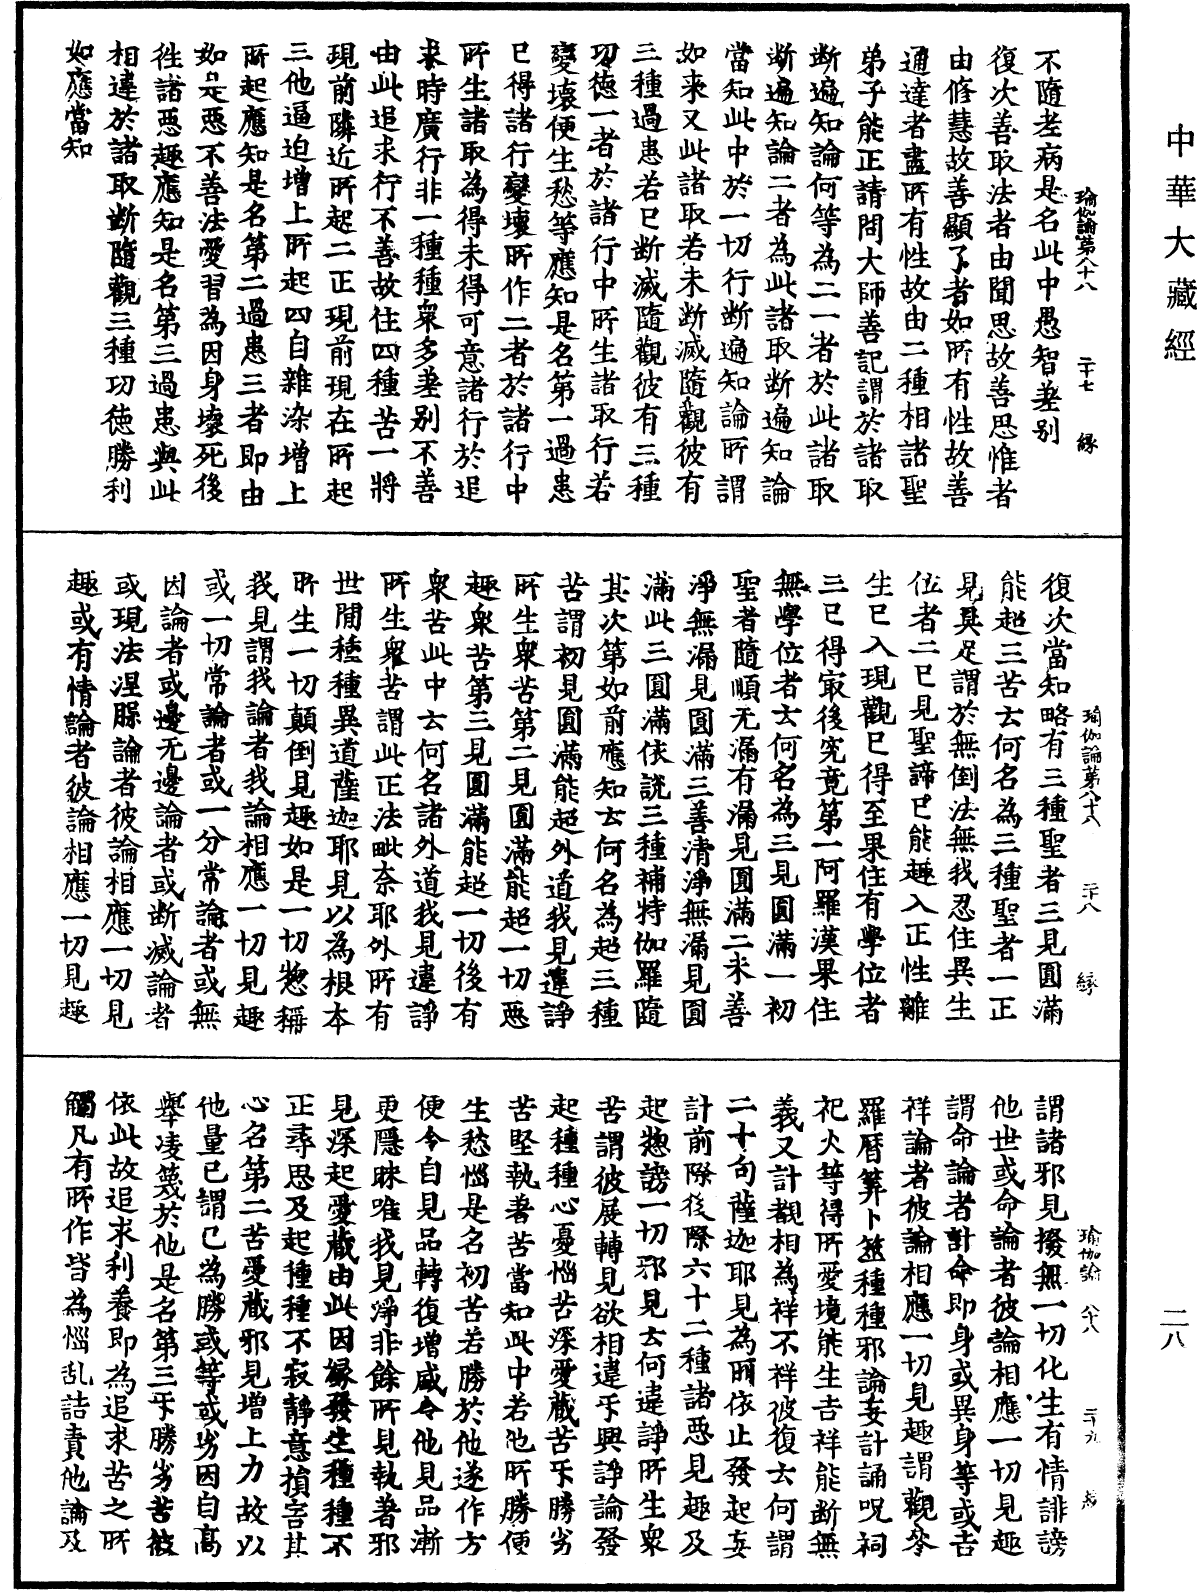 中華大藏經
二八
不隨老病是名此中愚智差别
瑜伽論第八十八 二十七 緣
復次善取法者由聞思故善思惟者
由修慧故善顯了者如所有性故善
通達者盡所有性故由二種相諸聖
弟子能正請問大師善記謂於諸取
斷遍知論何等為二一者於此諸取
斷遍知論二者為此諸取斷遍知論
當知此中於一切行斷遍知論所謂
如來又此諸取若未斷滅隨觀彼有
三種過患若已斷滅隨觀彼有三種
功德一者於諸行中所生諸取行若
變壞便生愁等應知是名第一過患
已得諸行變壞所作二者於諸行中
所生諸取為得未得可意諸行於追
求時廣行非一種種衆多差别不善
由此追求行不善故住四種苦一將
現前隣近所起二正現前現在所起
三他逼迫增上所起四自雜染增上
所起應知是名第二過患三者即由
如是惡不善法愛習為因身壞死後
徃諸惡趣應知是名第三過患與此
相違於諸取斷隨觀三種功德勝利
如應當知
復次當知略有三種聖者三見圓滿
瑜伽論第八十八 二十八 緣
能超三苦云何名為三種聖者一正
見具足謂於無倒法無我忍住異生
位者二已見聖諦已能趣入正性離
生已入現觀已得至果住有學位者
三已得最後究竟第一阿羅漢果住
無學位者云何名為三見圓滿一初
聖者隨順无漏有漏見圓滿二未善
淨無漏見圓滿三善清淨無漏見圓
滿此三圓滿依說三種補特伽羅隨
其次第如前應知云何名為超三種
苦謂初見圓滿能超外道我見違諍
所生衆苦第二見圓滿能超一切惡
趣衆苦第三見圓滿能超一切後有
衆苦此中云何名諸外道我見違諍
所生衆苦謂此正法毗奈耶外所有
世間種種異道薩迦耶見以為根本
所生一切顛倒見趣如是一切惣稱
我見謂我論者我論相應一切見趣
或一切常論者或一分常論者或無
因論者或邊无邊論者或断滅論者
或現法涅脲論者彼論相應一切見
趣或有情論者彼論相應一切見趣
謂諸邪見撥無一切化生有情誹謗
瑜伽論 八十八 二十九 緣
他世或命論者彼論相應一切見趣
謂命論者計命即身或異身等或吉
祥論者彼論相應一切見趣謂觀參
羅曆筭卜筮種種邪論妄計誦呪祠
祀火等得所愛境能生吉祥能断無
義又計覩相為祥不祥彼復云何謂
二十句薩迦耶見為所依止發起妄
計前際後際六十二種諸惡見趣及
起惣謗一切邪見云何違諍所生衆
苦謂彼展轉見欲相違㸦興諍論發
起種種心憂惱苦深愛藏苦㸦勝劣
苦堅執著苦當知此中若他所勝便
生愁惱是名初苦若勝於他遂作方
便令自見品轉復增盛令他見品漸
更隱昧唯我見淨非餘所見執著邪
見深起愛藏由此因緣發生種種不
正尋思及起種種不寂靜意損害其
心名第二苦愛藏邪見增上力故以
他量已謂己為勝或等或劣因自高
舉凌篾於他是名第三㸦勝劣苦彼
依此故追求利養即為追求苦之所
觸凡有所作皆為惱乱詰責他論及